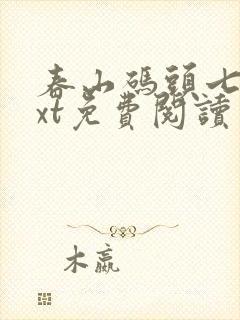 春山碼頭七
xt免費閱讀
木嬴